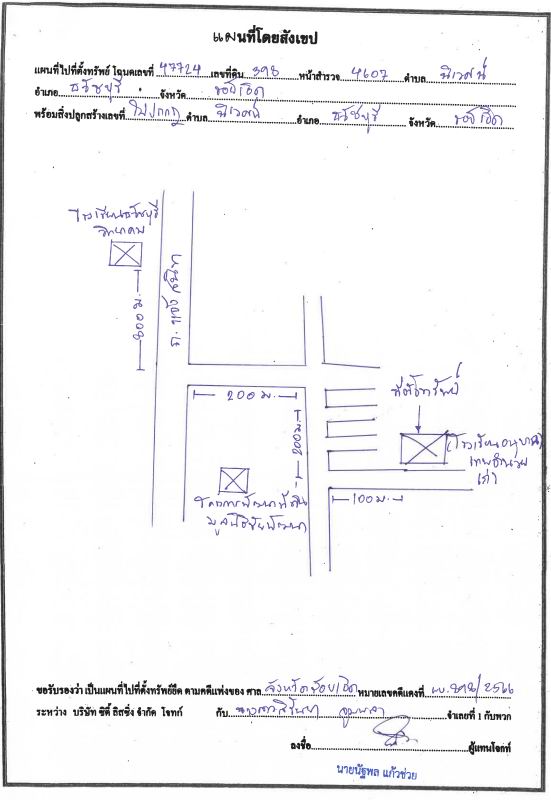 แผนที่โดยสังเขป
แผนที่ไปที่ตั้งทรัพย์ โฉนดเลขที่ 47724 เลขที่ดิน 398 หน้าสำรวจ 4607 ตำบล นิเวศน์
อำเภอ ธวัชบุรี จังหวัด ร้อยเอ็ด
พร้อมสิ่งปลูกสร้างเลขที่ ไม่ปรากฏ ตำบล นิเวศน์ อำเภอ ธวัชบุรี จังหวัด ร้อยเอ็ด
โรงเรียนธวัชบุรี
วิทยาคม
800 ม.
ถ. แจ้งสนิท
200 ม.
200 ม.
ที่ตั้งทรัพย์
(โรงเรียนอนุบาล
เทพอำนวย
เก่า)
100 ม.
โครงการพัฒนาที่ดิน
มูลนิธิชัยพัฒนา
ขอรับรองว่า เป็นแผนที่ไปที่ตั้งทรัพย์ยึด ตามคดีแพ่งของ ศาล จังหวัดร้อยเอ็ด หมายเลขคดีแดงที่ /2566
ระหว่าง บริษัท ซิตี้ ลิสซิ่ง จำกัด โจทก์ กับ จำเลยที่ 1 กับพวก
ลงชื่อ ผู้แทนโจทก์
นายนัฐพล แก้วช่วย